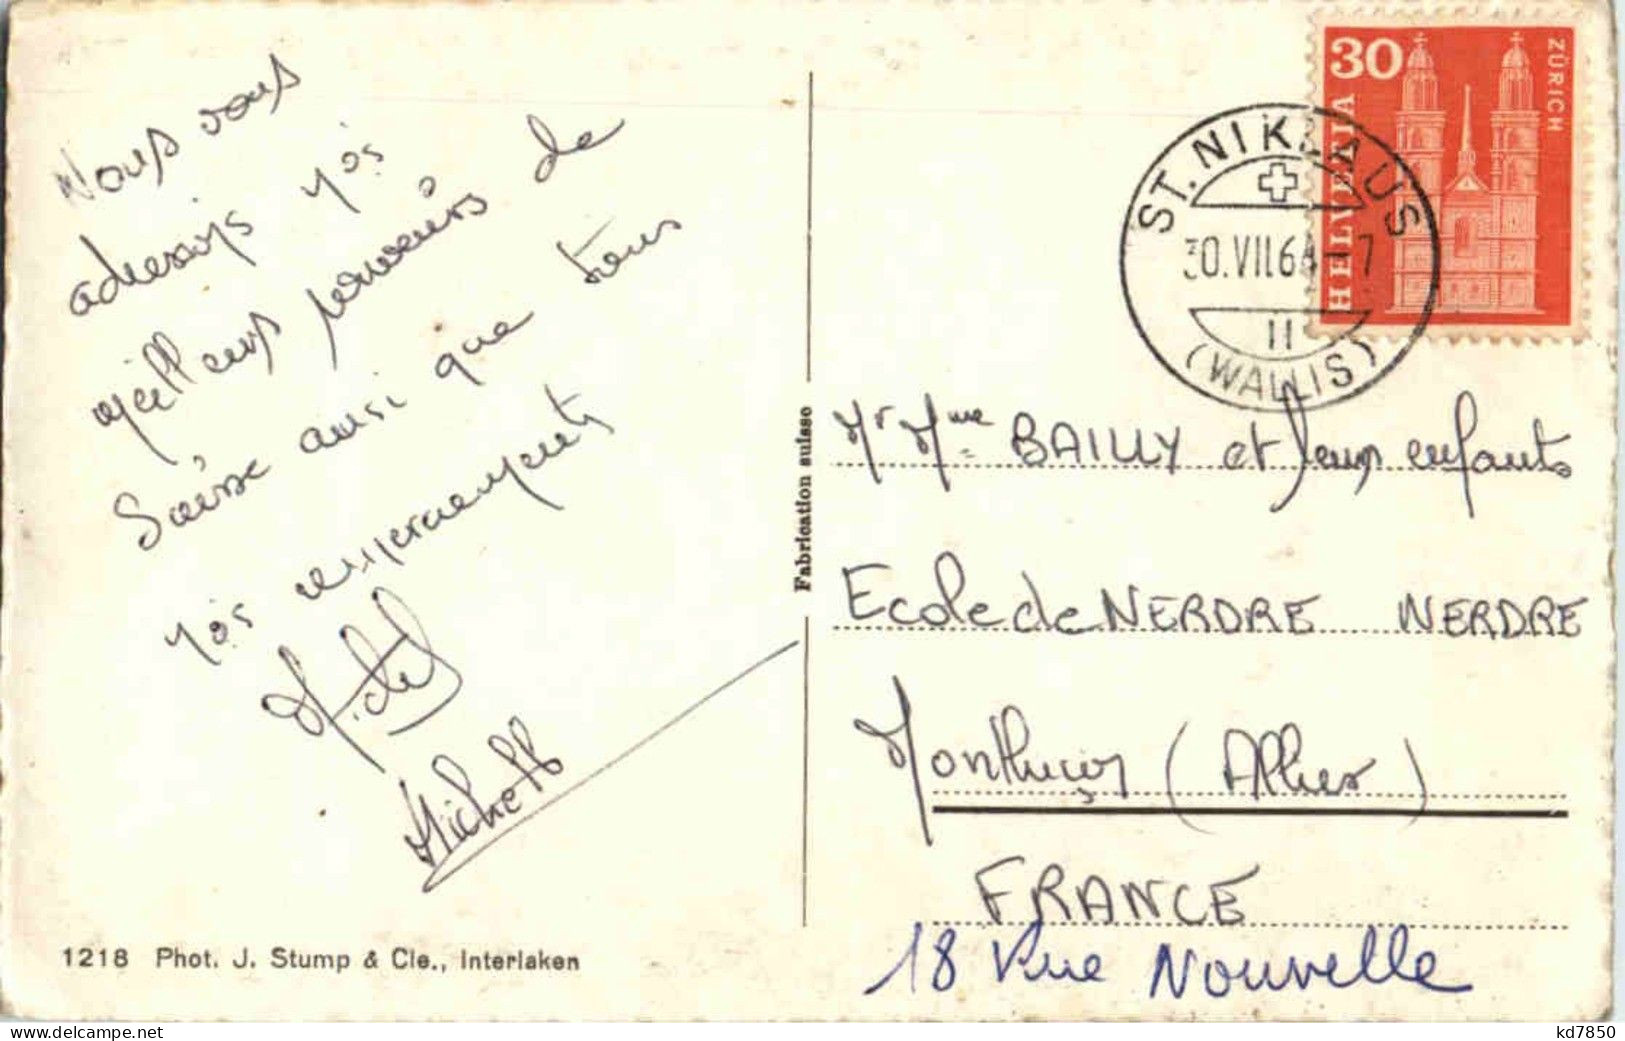 Nous vous
adressons nos
meilleurs souvenirs de
Suisse ainsi que tous
nos remerciements
Michel
1218 Phot. J. Stump & Cie., Interlaken
Fabrication suisse
30
ZÜRICH
HELVETIA
ST. NIKLAUS
30.VII.64-7
II
(WALLIS)
Mr Mme BAILLY et leurs enfants
Ecole de NERDRE NERDRE
Montluçon (Allier)
FRANCE
18 Rue Nouvelle
kd7850